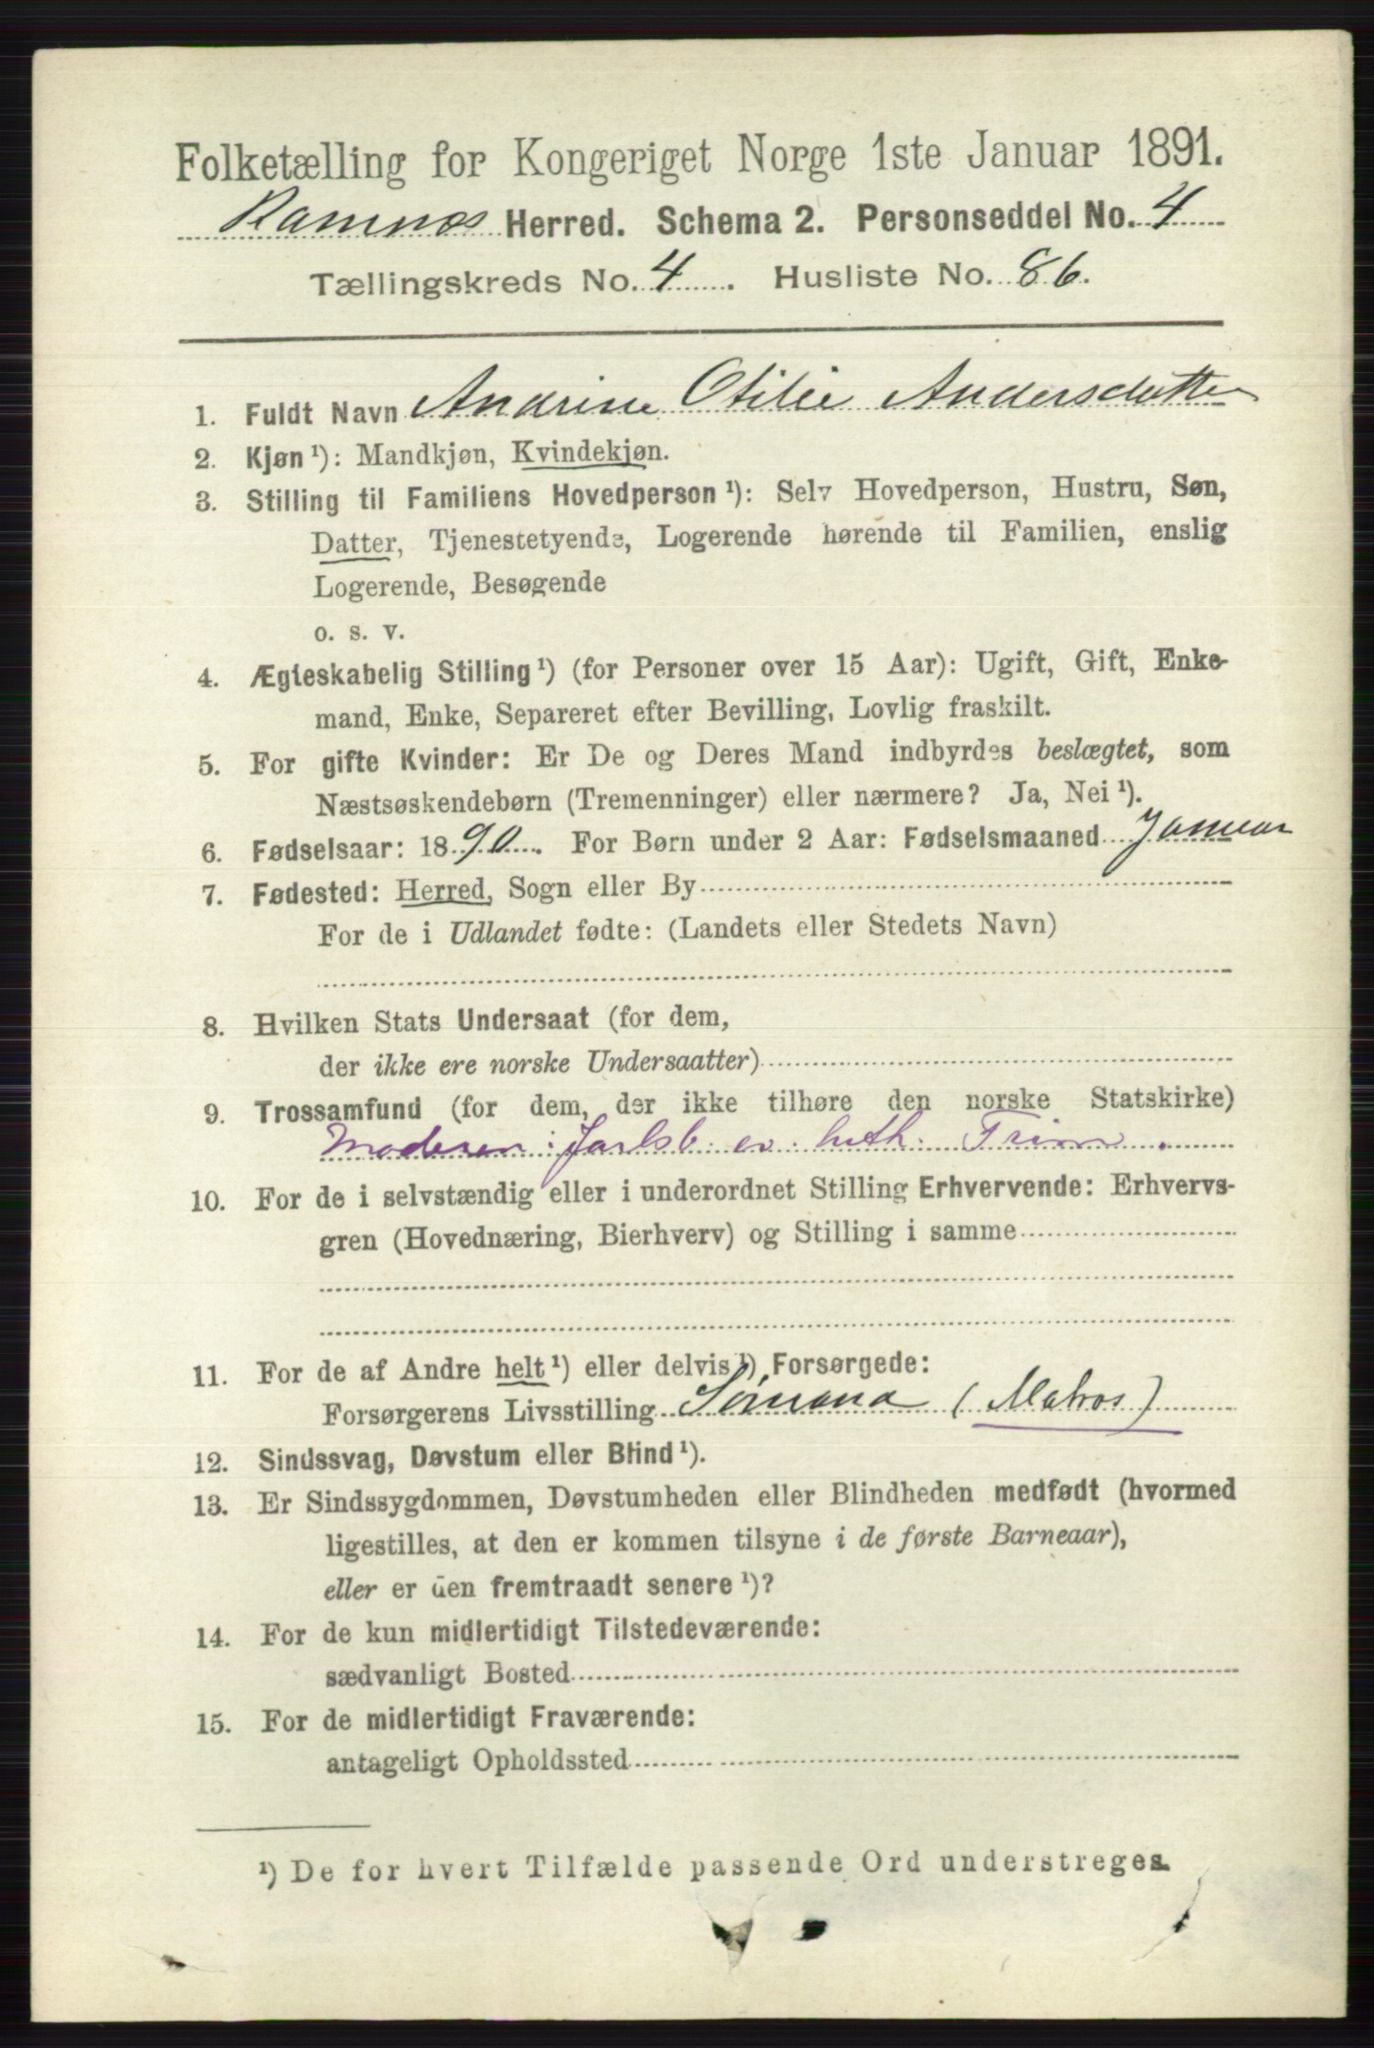 Folketælling for Kongeriget Norge 1ste Januar 1891.
Ramnes Herred. Schema 2. Personseddel No. 4
Tællingskreds No. 4. Husliste No. 86.
1. Fuldt Navn Andrine Otilie Andersdatter
2. Kjøn ¹): Mandkjøn, Kvindekjøn.
3. Stilling til Familiens Hovedperson ¹): Selv Hovedperson, Hustru, Søn,
Datter, Tjenestetyende, Logerende hørende til Familien, enslig
Logerende, Besøgende
o. s. v.
4. Ægteskabelig Stilling ¹) (for Personer over 15 Aar): Ugift, Gift, Enke-
mand, Enke, Separeret efter Bevilling, Lovlig fraskilt.
5. For gifte Kvinder: Er De og Deres Mand indbyrdes beslægtet, som
Næstsøskendebørn (Tremenninger) eller nærmere? Ja, Nei ¹).
6. Fødselsaar: 1890. For Børn under 2 Aar: Fødselsmaaned Januar
7. Fødested: Herred, Sogn eller By
For de i Udlandet fødte: (Landets eller Stedets Navn)
8. Hvilken Stats Undersaat (for dem,
der ikke ere norske Undersaatter)
9. Trossamfund (for dem, der ikke tilhøre den norske Statskirke)
Moderen: Jarlsb. ev. luth. Frim.
10. For de i selvstændig eller i underordnet Stilling Erhvervende: Erhvervs-
gren (Hovednæring, Bierhverv) og Stilling i samme
11. For de af Andre helt ¹) eller delvis ¹) Forsørgede:
Forsørgerens Livsstilling Sømand (Matros)
12. Sindssvag, Døvstum eller Blind ¹).
13. Er Sindssygdommen, Døvstumheden eller Blindheden medfødt (hvormed
ligestilles, at den er kommen tilsyne i de første Barneaar),
eller er den fremtraadt senere ¹)?
14. For de kun midlertidigt Tilstedeværende:
sædvanligt Bosted
15. For de midlertidigt Fraværende:
antageligt Opholdssted
¹) De for hvert Tilfælde passende Ord understreges.